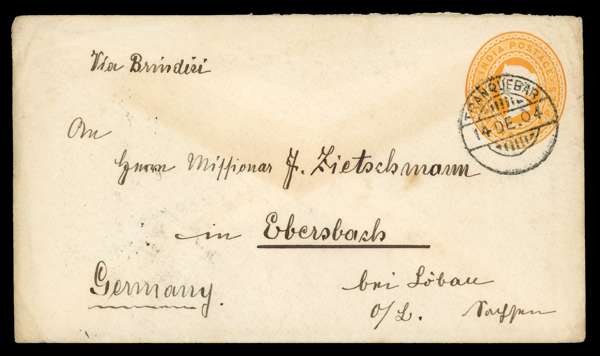 INDIA POSTAGE
TRANQUEBAR
14 DE. 04
Via Brindisi
An
Herrn Missionar J. Zietschmann
in Ebersbach
Germany.
bei Löbau
O/L. Sachsen